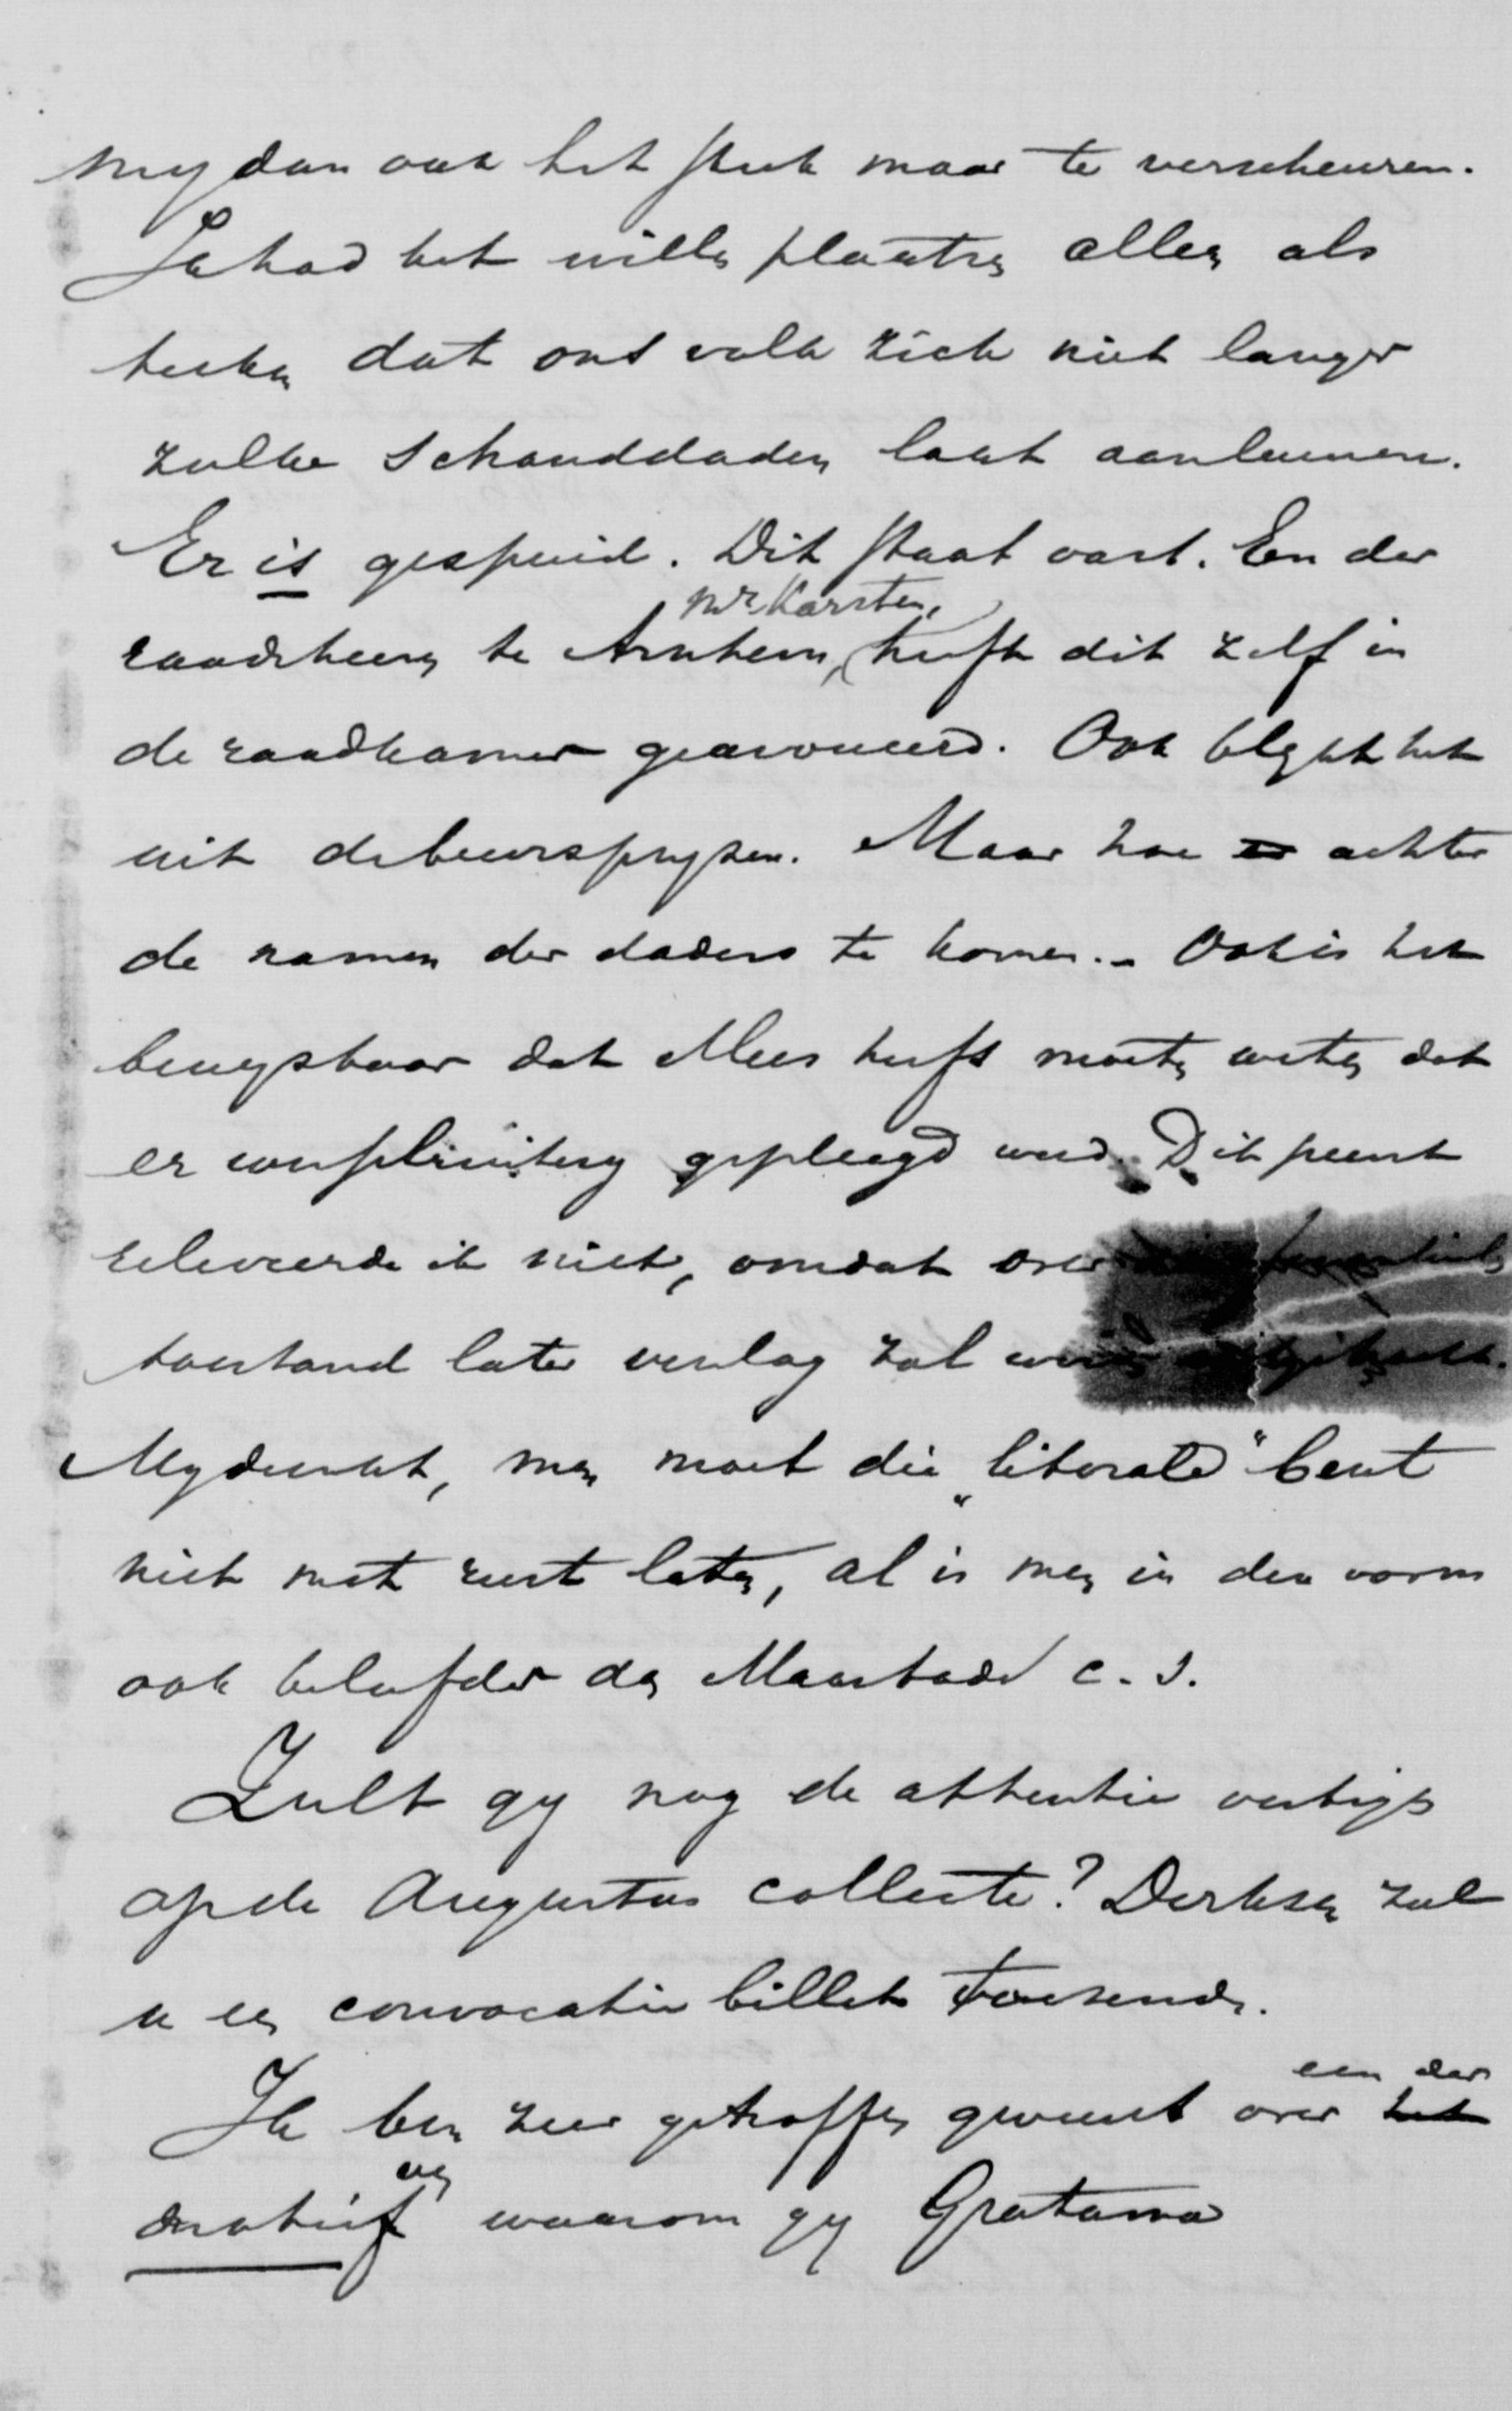 my dan ook het stuk maar te verscheuren.
Ik had het willen plaatsen alleen als
teeken dat ons volk zich niet langer
zulke schanddaden laat aanleunen.
Er is gespuid. Dit staat vast. Een der
mr Karsten,
raadsheeren te Arnhem, heeft dit zelf in
de raadkamer geavoueerd. Ook blykt het
uit de beurspryzen. Maar hoe er achter
de namen der daders te komen. - Ook is het
bewysbaar dat Mees heeft moeten weten dat
er gepleegd werd. Dit punt
releveerde ik niet, omdat over
toestand later verslag zal
My dunkt, men moet die "liberale" bent
niet met rust laten, al is men in den vorm
ook beleefder dan Maasbode c.s.
Zult gy nog de attentie vestigen
op de Augustus collecte? Derksen zal
u een convocatie billet toezenden.
een der
Ik ben zeer getroffen geweest over het
en
motief waarom gy Gratama